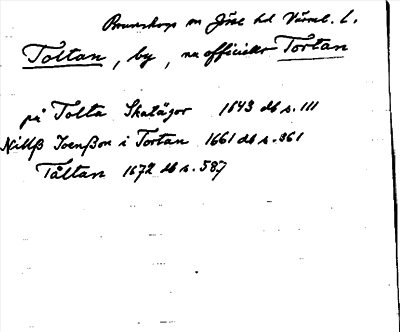 Brunskogs sn Jöse hd Värml. l.
Toltan, by, nu officiellt Tortan
på Tolta Skatägor 1643 db s. 111
Nillß Joenßon i Tortan 1661 db s. 361
Tåltan 1672 db s. 587